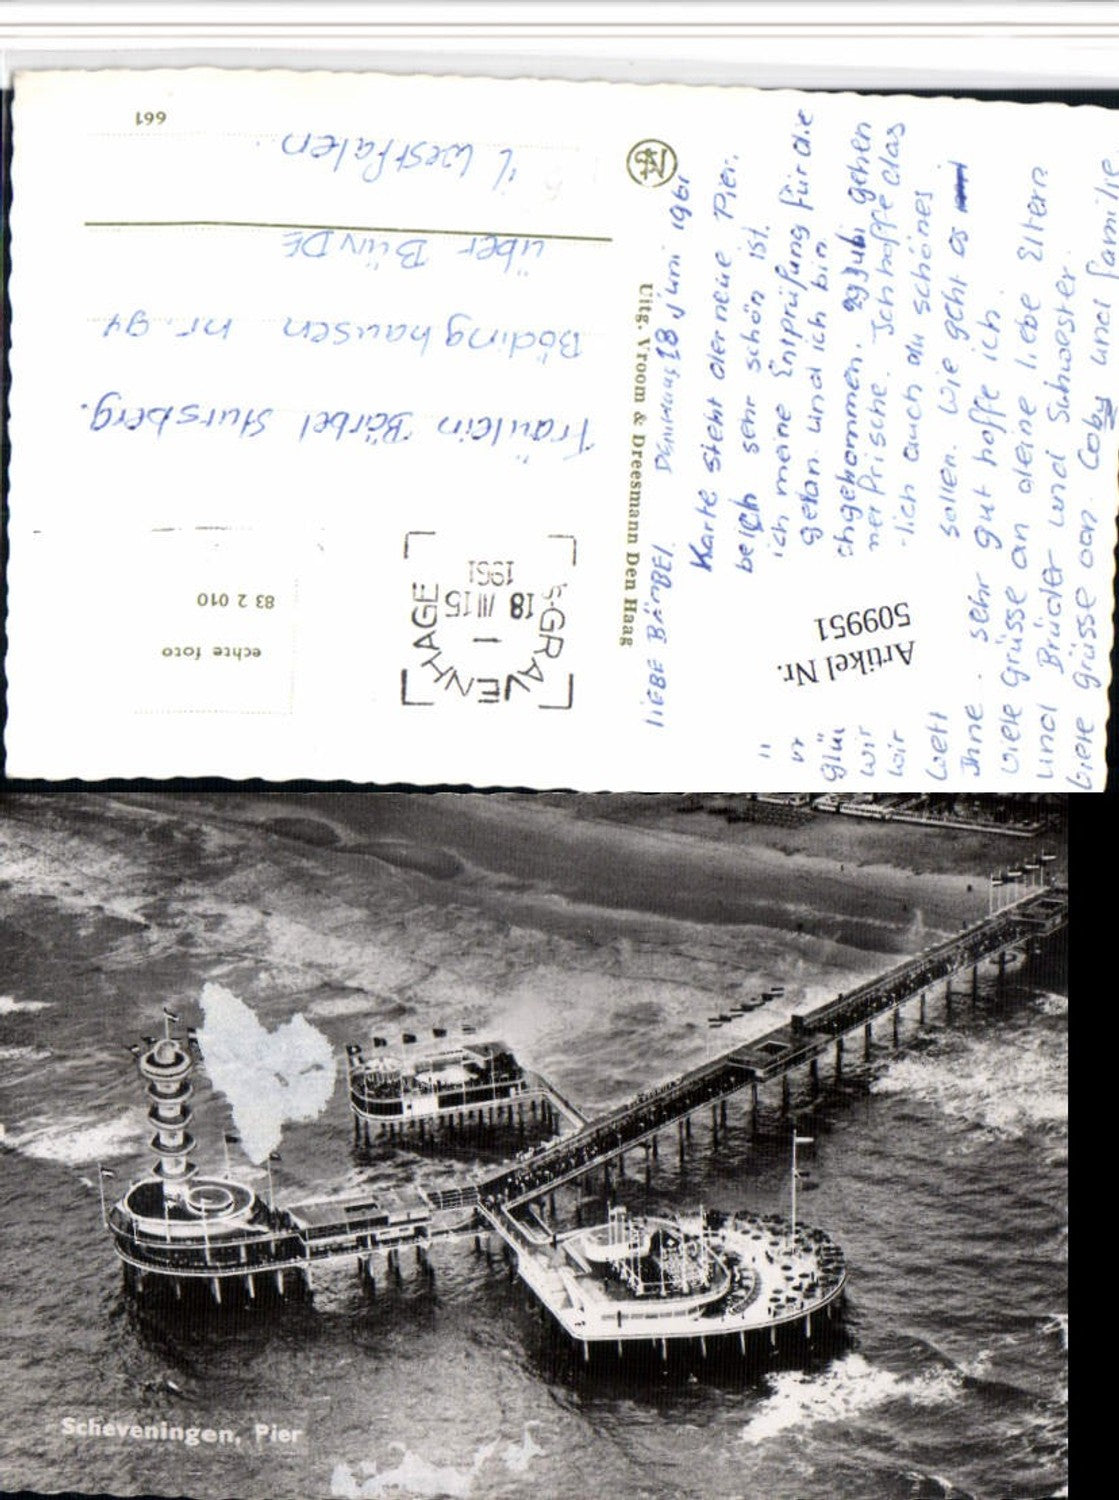 LIEBE BÄRBEL. Den Haag 18 Juni 1961
Karte steht der neue Pier.
sehr schön ist.
ich meine Entprüfung für die
getan. und ich bin
gehen
Ich hoffe das
-lich auch du schönes
Wett sollen. Wie geht es
Ihne. sehr gut hoffe ich.
viele Grüsse an deine liebe Eltern
und Brüder und Schwester.
viele Grüsse von. Coby und familie
Artikel Nr.
509951
Uitg. Vroom & Dreesmann Den Haag
's-GRAVENHAGE
18 III 15
1961
echte foto
83 2 010
Fräulein Bärbel Stursberg.
Bödinghausen nr. 94
über BÜNDE
i/ Westfalen
661
Scheveningen, Pier